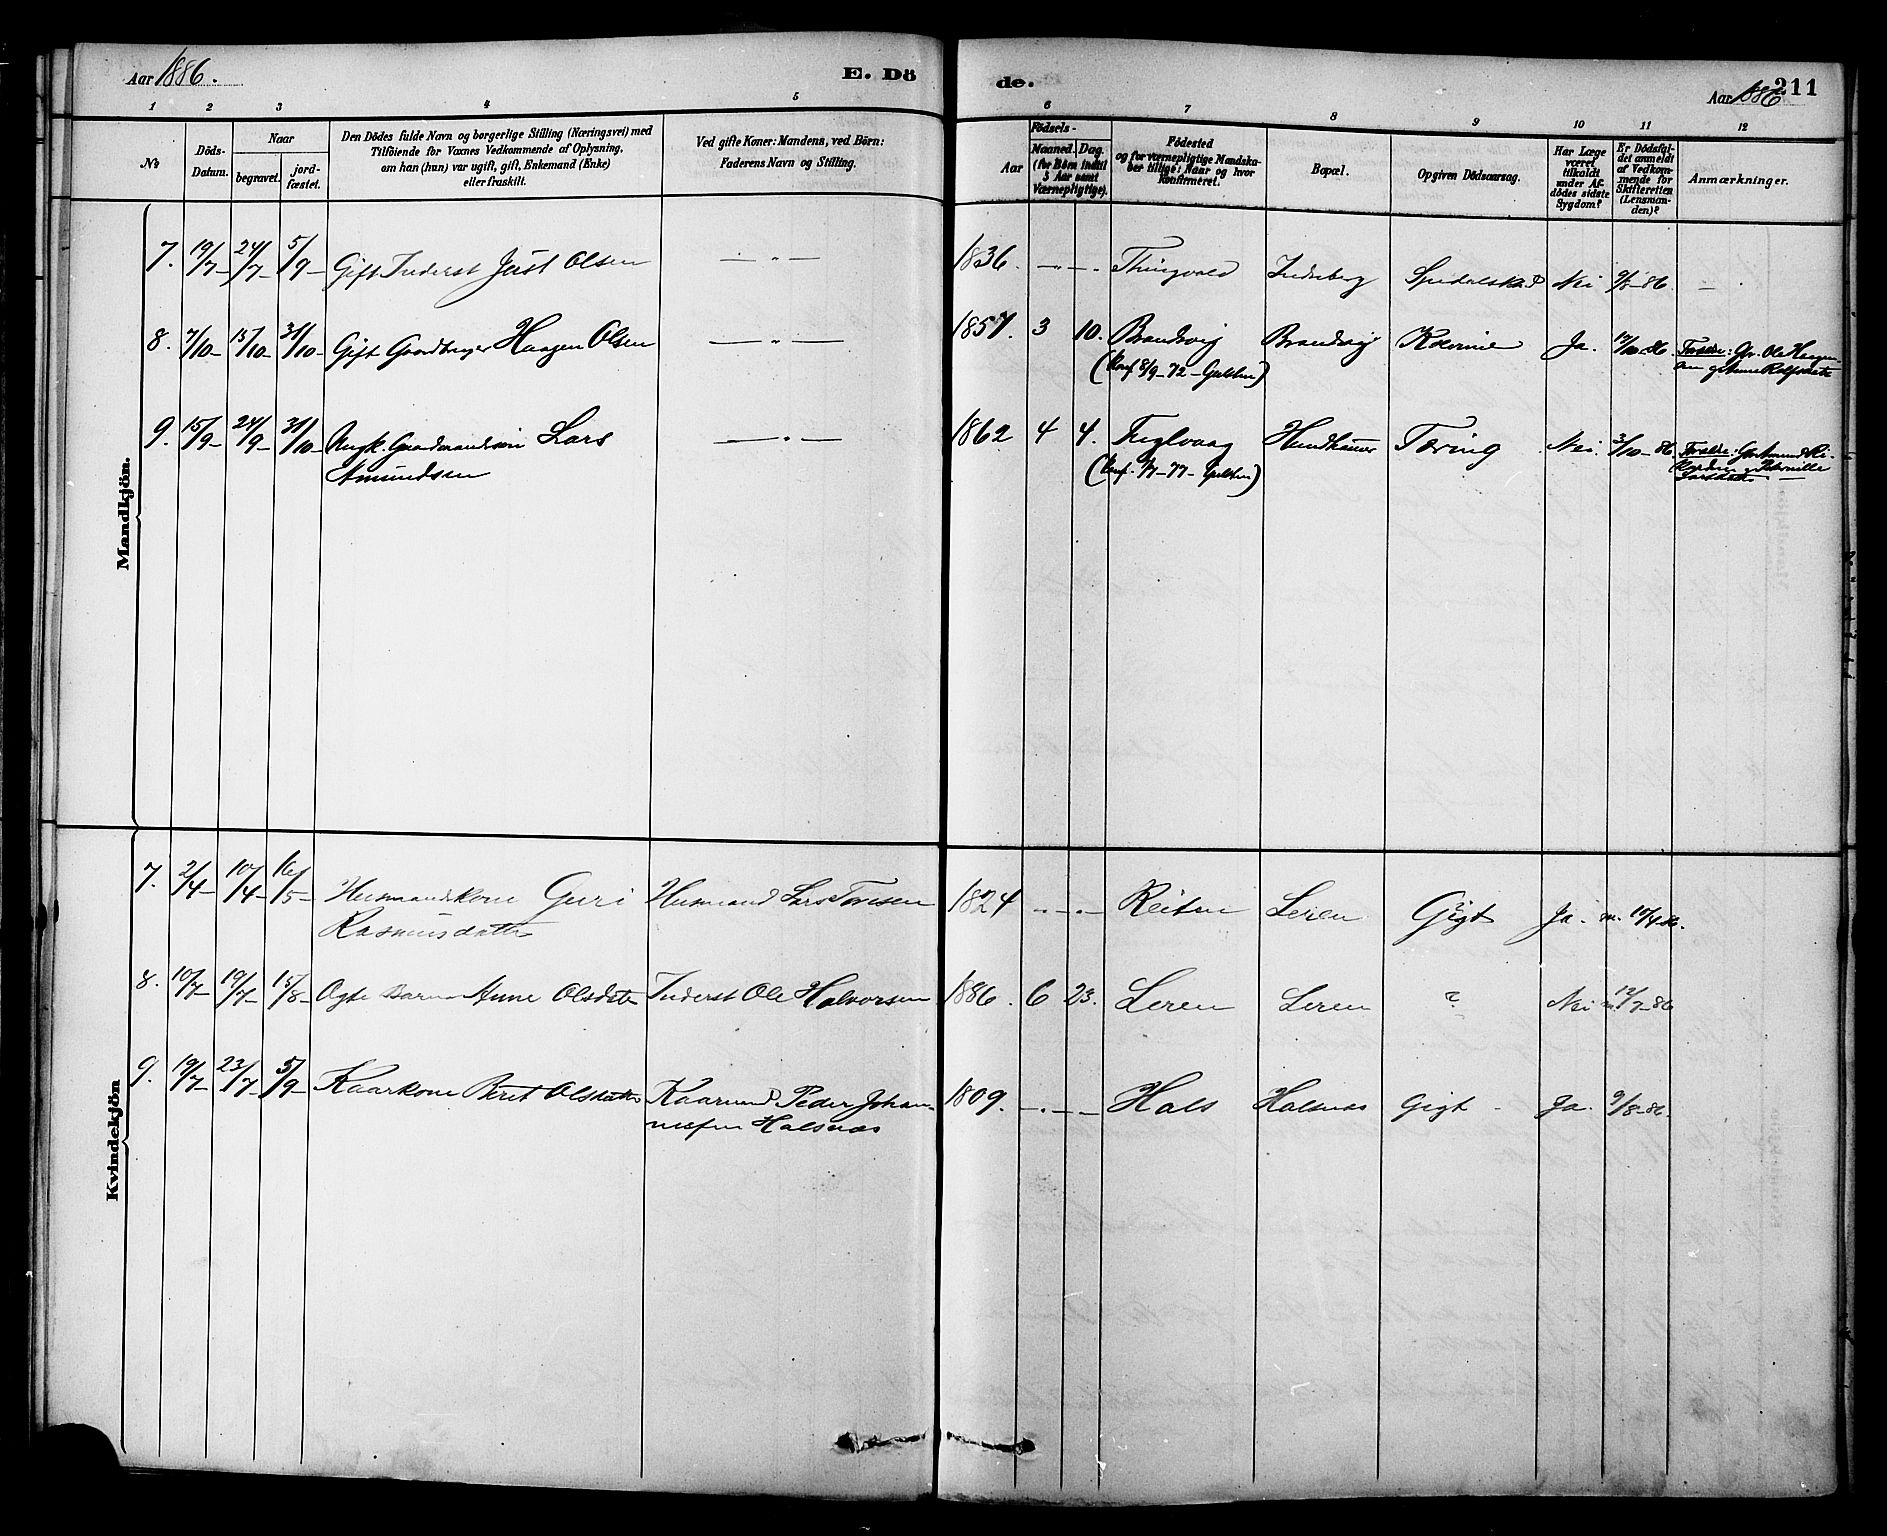 Aar 1886.
E. Döde.
Aar 1886
211
1 2 3 4 5 6 7 8 9 10 11 12
№
Döds-Datum.
Naar
begravet.
jord-fæstet.
Den Dödes fulde Navn og borgerlige Stilling (Næringsvei) med
Tilföiende for Voxnes Vedkommende af Oplysning,
om han (hun) var ugift, gift, Enkemand (Enke)
eller fraskilt.
Ved gifte Koner: Mandens, ved Börn:
Faderens Navn og Stilling.
Födsels-
Aar
Maaned. Dag.
(for Börn indtil
5 Aar samt
Værnepligtige).
Födested
og for værnepligtige Mandska-
ber tillige: Naar og hvor
Konfirmeret.
Bopæl.
Opgiven Dödsaarsag.
Har Læge
været
tilkaldt
under Af-
dödes sidste
Sygdom?
Er Dödsfal-
det anmeldt
af Vedkom-
mende for
Skifteretten
(Lensman-
den)?
Anmærkninger.
Mandkjön.
7. 19/7- 24/7- 5/9- Gift Inderst Just Olsen — " — 1836. — " — Thingvold Indreberg Spedalskhed Nei 9/8-86. —
8. 7/10- 15/10- 31/10- Gift Gaardbruger Haagen Olsen — " — 1857. 3 10. Brandvig Brandvig Ja. 12/10-86. Foræld: Gr. Ole Haagen-
(Konf. 8/9-72-
9. 15/9- 24/9- 31/10- Ungk. Gaardmandssøn Lars — " — 1862 4 4. Fuglvaag Hundhammer Tæring Nei. 3/10-86. Foræld: Gr. Amund
Amundsen
Kvindekjön
7. 2/4- 10/4- 16/5- Husmandskone Guri Husmand Lars Toresen 1824 — " — Reiten Leren Gigt Ja. m. 10/4-86.
Rasmusdatter
8. 10/7- 19/7- 15/8- Ægte Barn Anne Olsdatter Inderst Ole Halvorsen 1886. 6 23. Leren Leren ? Nei m. 12/7-86
9. 19/7- 23/7- 5/9- Kaarkone Beret Olsdatter Kaarmand Peder Johan- 1809. — " — Hals Halsnæs Gigt Ja. 9/8-86.
nessen Halsnæs